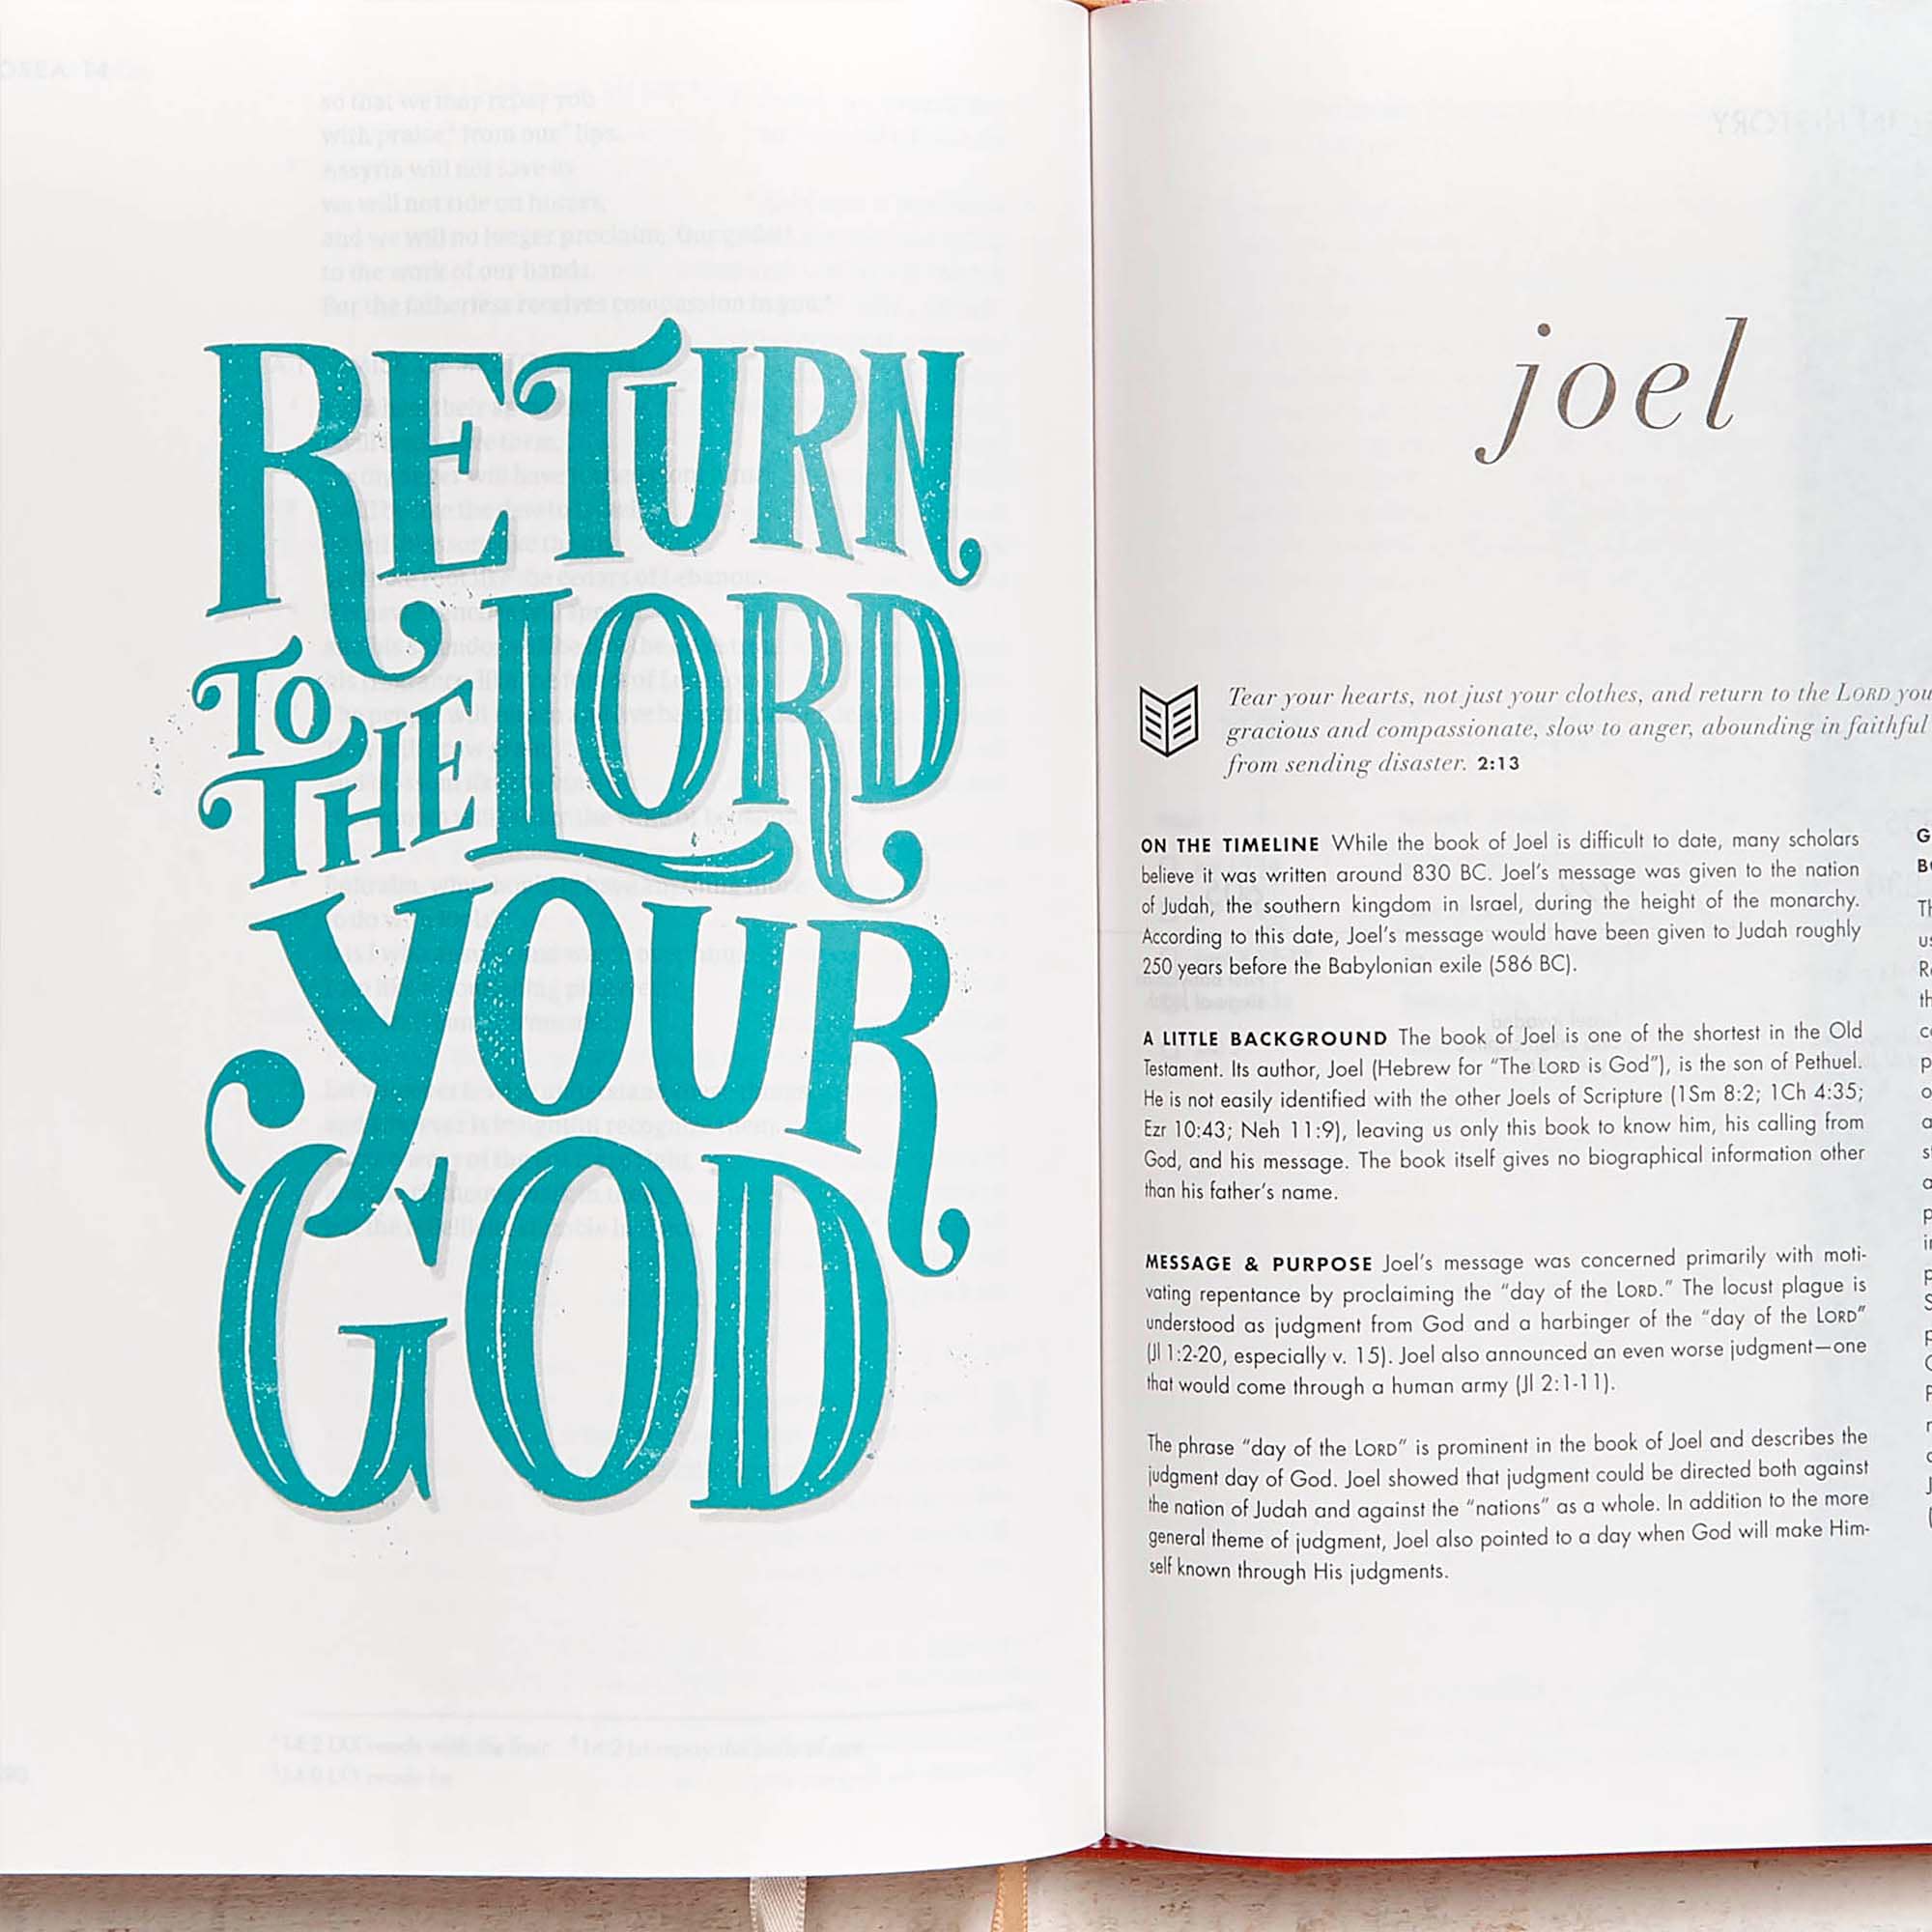 RETURN
TO THE LORD
YOUR
GOD
joel
Tear your hearts, not just your clothes, and return to the LORD you
gracious and compassionate, slow to anger, abounding in faithful
from sending disaster. 2:13
ON THE TIMELINE While the book of Joel is difficult to date, many scholars
believe it was written around 830 BC. Joel's message was given to the nation
of Judah, the southern kingdom in Israel, during the height of the monarchy.
According to this date, Joel's message would have been given to Judah roughly
250 years before the Babylonian exile (586 BC).
A LITTLE BACKGROUND The book of Joel is one of the shortest in the Old
Testament. Its author, Joel (Hebrew for “The LORD is God”), is the son of Pethuel.
He is not easily identified with the other Joels of Scripture (1Sm 8:2; 1Ch 4:35;
Ezr 10:43; Neh 11:9), leaving us only this book to know him, his calling from
God, and his message. The book itself gives no biographical information other
than his father's name.
MESSAGE & PURPOSE Joel's message was concerned primarily with moti-
vating repentance by proclaiming the “day of the LORD.” The locust plague is
understood as judgment from God and a harbinger of the “day of the LORD”
(Jl 1:2-20, especially v. 15). Joel also announced an even worse judgment—one
that would come through a human army (Jl 2:1-11).
The phrase “day of the LORD” is prominent in the book of Joel and describes the
judgment day of God. Joel showed that judgment could be directed both against
the nation of Judah and against the “nations” as a whole. In addition to the more
general theme of judgment, Joel also pointed to a day when God will make Him-
self known through His judgments.